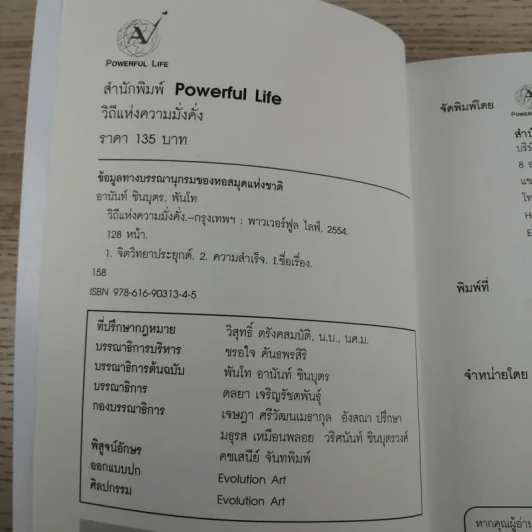 POWERFUL LIFE
สำนักพิมพ์ Powerful Life
วิถีแห่งความมั่งคั่ง
ราคา 135 บาท
ข้อมูลทางบรรณานุกรมของหอสมุดแห่งชาติ
อานันท์ ชินบุตร, พันโท
วิถีแห่งความมั่งคั่ง.--กรุงเทพฯ : พาวเวอร์ฟูล ไลฟ์, 2554.
128 หน้า.
1. จิตวิทยาประยุกต์. 2. ความสำเร็จ. I.ชื่อเรื่อง.
158
ISBN 978-616-90313-4-5
ที่ปรึกษากฎหมาย วิสุทธิ์ ตรังคสมบัติ, น.บ., นศ.ม.
บรรณาธิการบริหาร ชรอใจ คันธพรสิริ
บรรณาธิการต้นฉบับ พันโท อานันท์ ชินบุตร
บรรณาธิการ ดลยา เจริญรัชตพันธุ์
กองบรรณาธิการ เจษฎา ศรีวัฒนเมธากุล อังสณา ปรึกษา
มธุรส เหมือนพลอย วริศนันท์ ชินบุตรวงศ์
พิสูจน์อักษร คชเสนีย์ จันทพิมพ์
ออกแบบปก Evolution Art
ศิลปกรรม Evolution Art
จัดพิมพ์โดย
พิมพ์ที่
จำหน่ายโดย
หากคุณผู้อ่าน